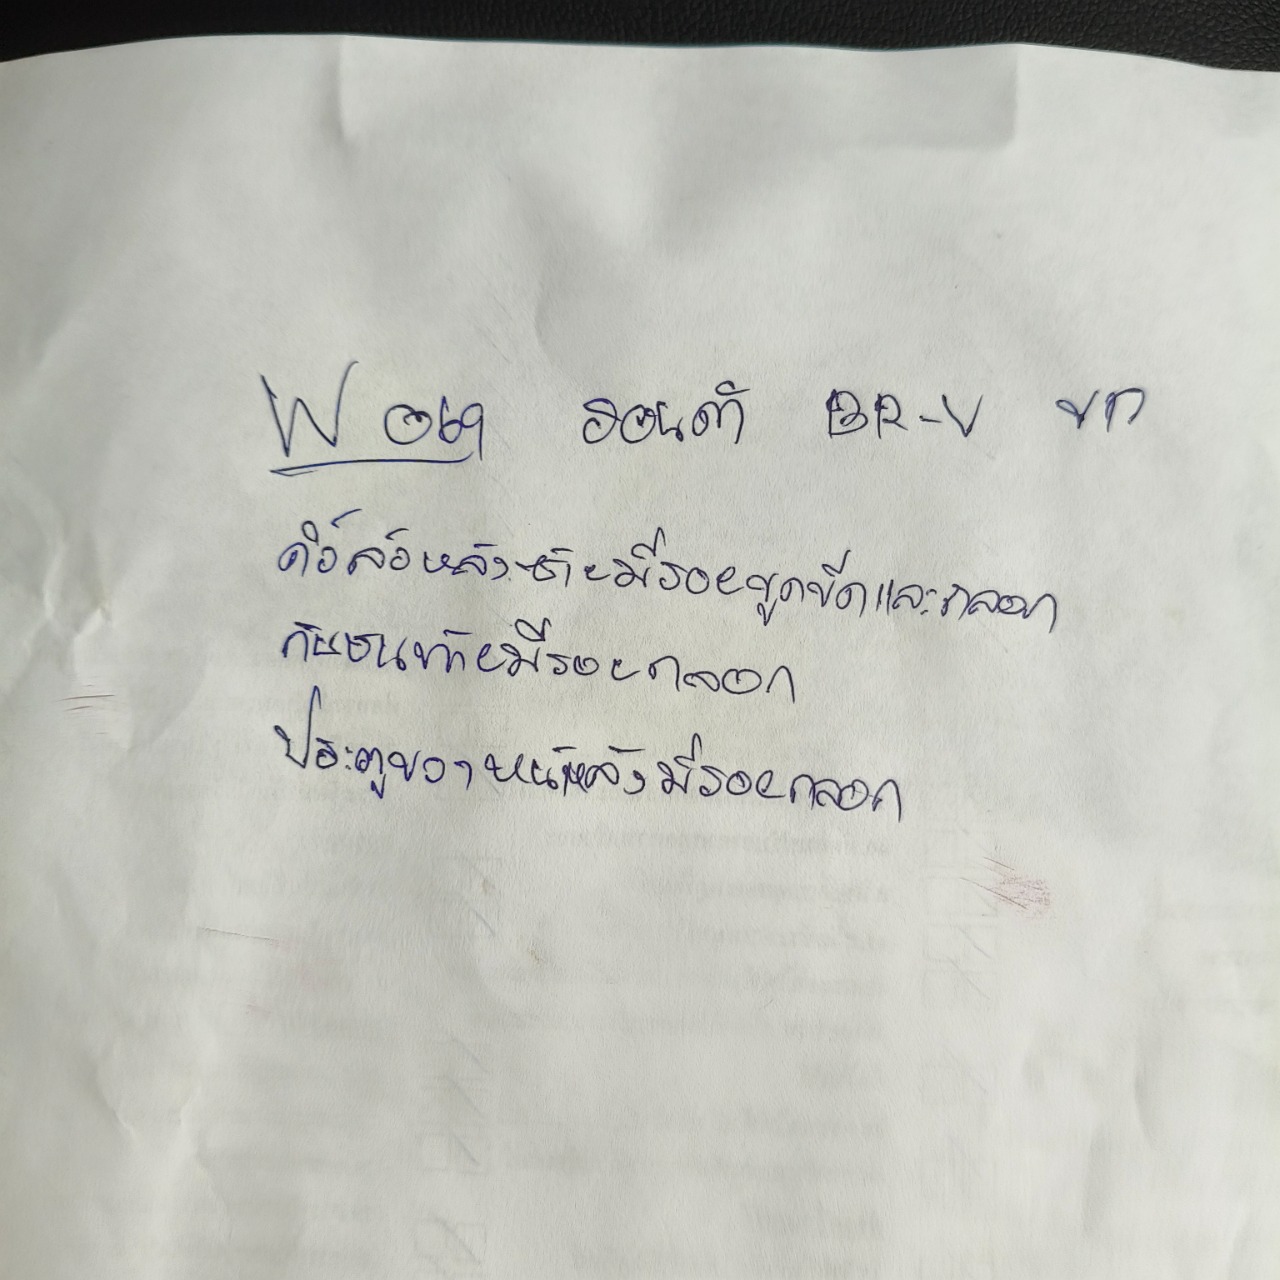 W 069 ฮอนด้า BR-V ขก
คิ้วล้อหลังซ้ายมีรอยขูดขีดและถลอก
กันชนท้ายมีรอยถลอก
ประตูขวาหน้าหลังมีรอยถลอก